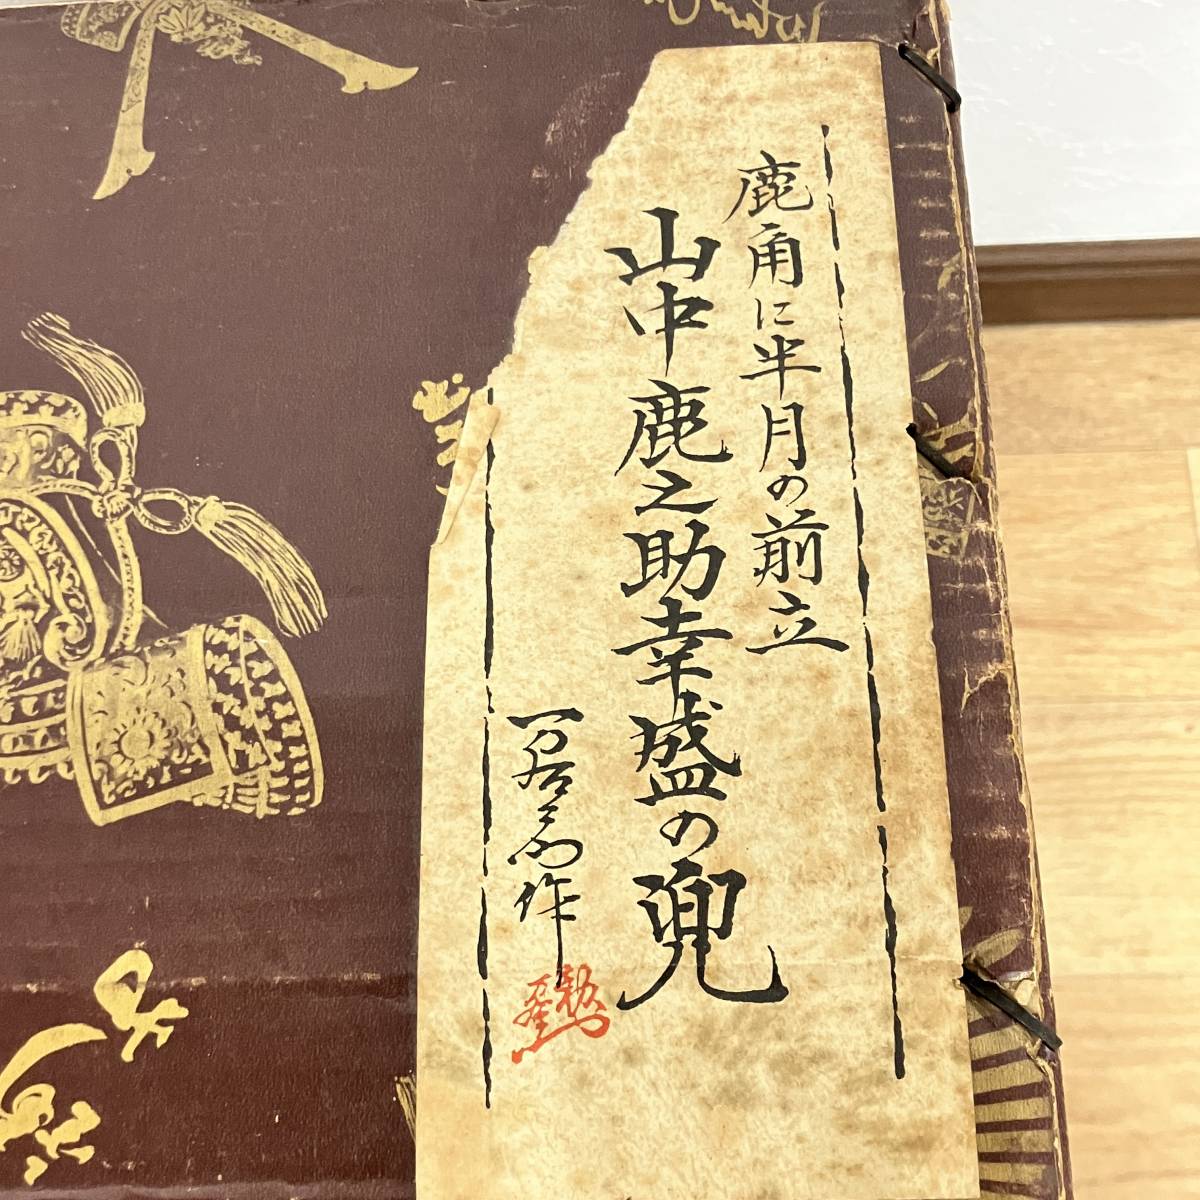 鹿角に半月の前立
山中鹿之助幸盛の兜
作